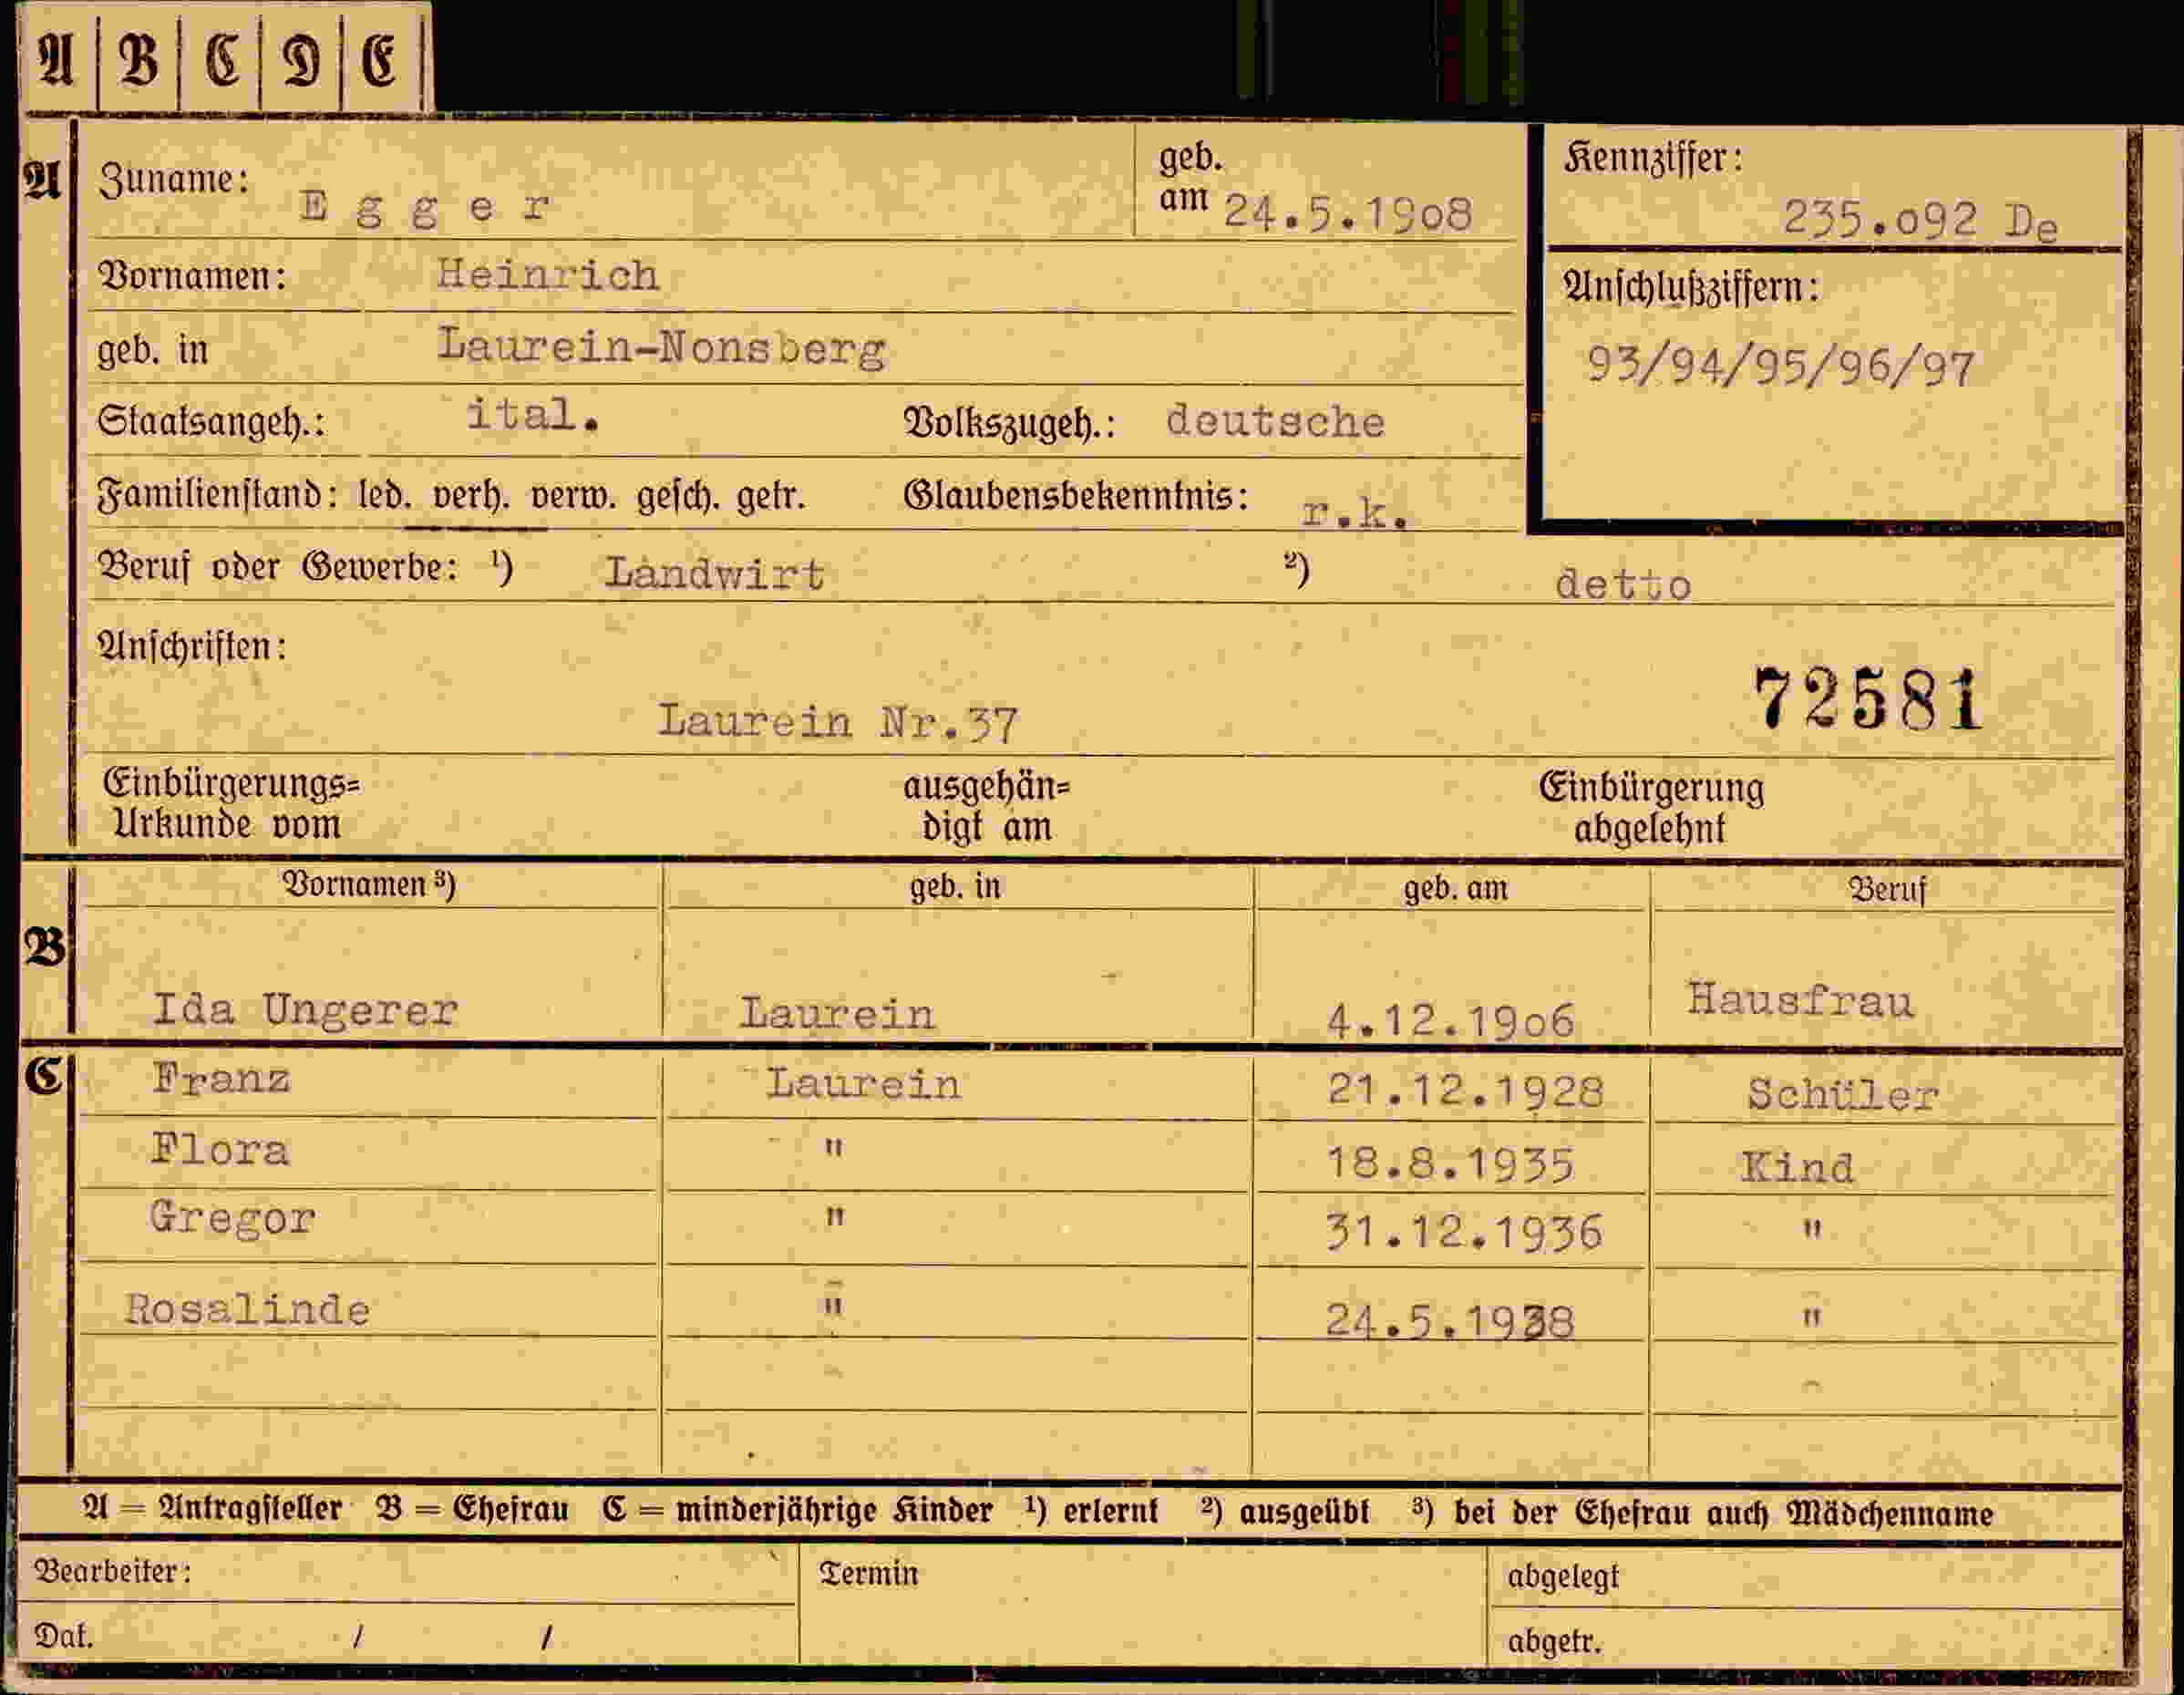 A B C D E
A Zuname: Egger geb. am 24.5.19o8 Kennziffer: 235.o92 De
Vornamen: Heinrich Anschlußziffern:
geb. in Laurein-Nonsberg 93/94/95/96/97
Staatsangeh.: ital. Volkszugeh.: deutsche
Familienstand: led. verh. verw. gesch. getr. Glaubensbekenntnis: r.k.
Beruf oder Gewerbe: ¹) Landwirt ²) detto
Anschriften:
Laurein Nr.37 72581
Einbürgerungs= ausgehän= Einbürgerung
Urkunde vom digt am abgelehnt
Vornamen ³) geb. in geb. am Beruf
B
Ida Ungerer Laurein 4.12.19o6 Hausfrau
C Franz Laurein 21.12.1928 Schüler
Flora " 18.8.1935 Kind
Gregor " 31.12.1936 "
Rosalinde " 24.5.1938 "
A = Antragsteller B = Ehefrau C = minderjährige Kinder ¹) erlernt ²) ausgeübt ³) bei der Ehefrau auch Mädchenname
Bearbeiter: Termin abgelegt
Dat. / / abgetr.